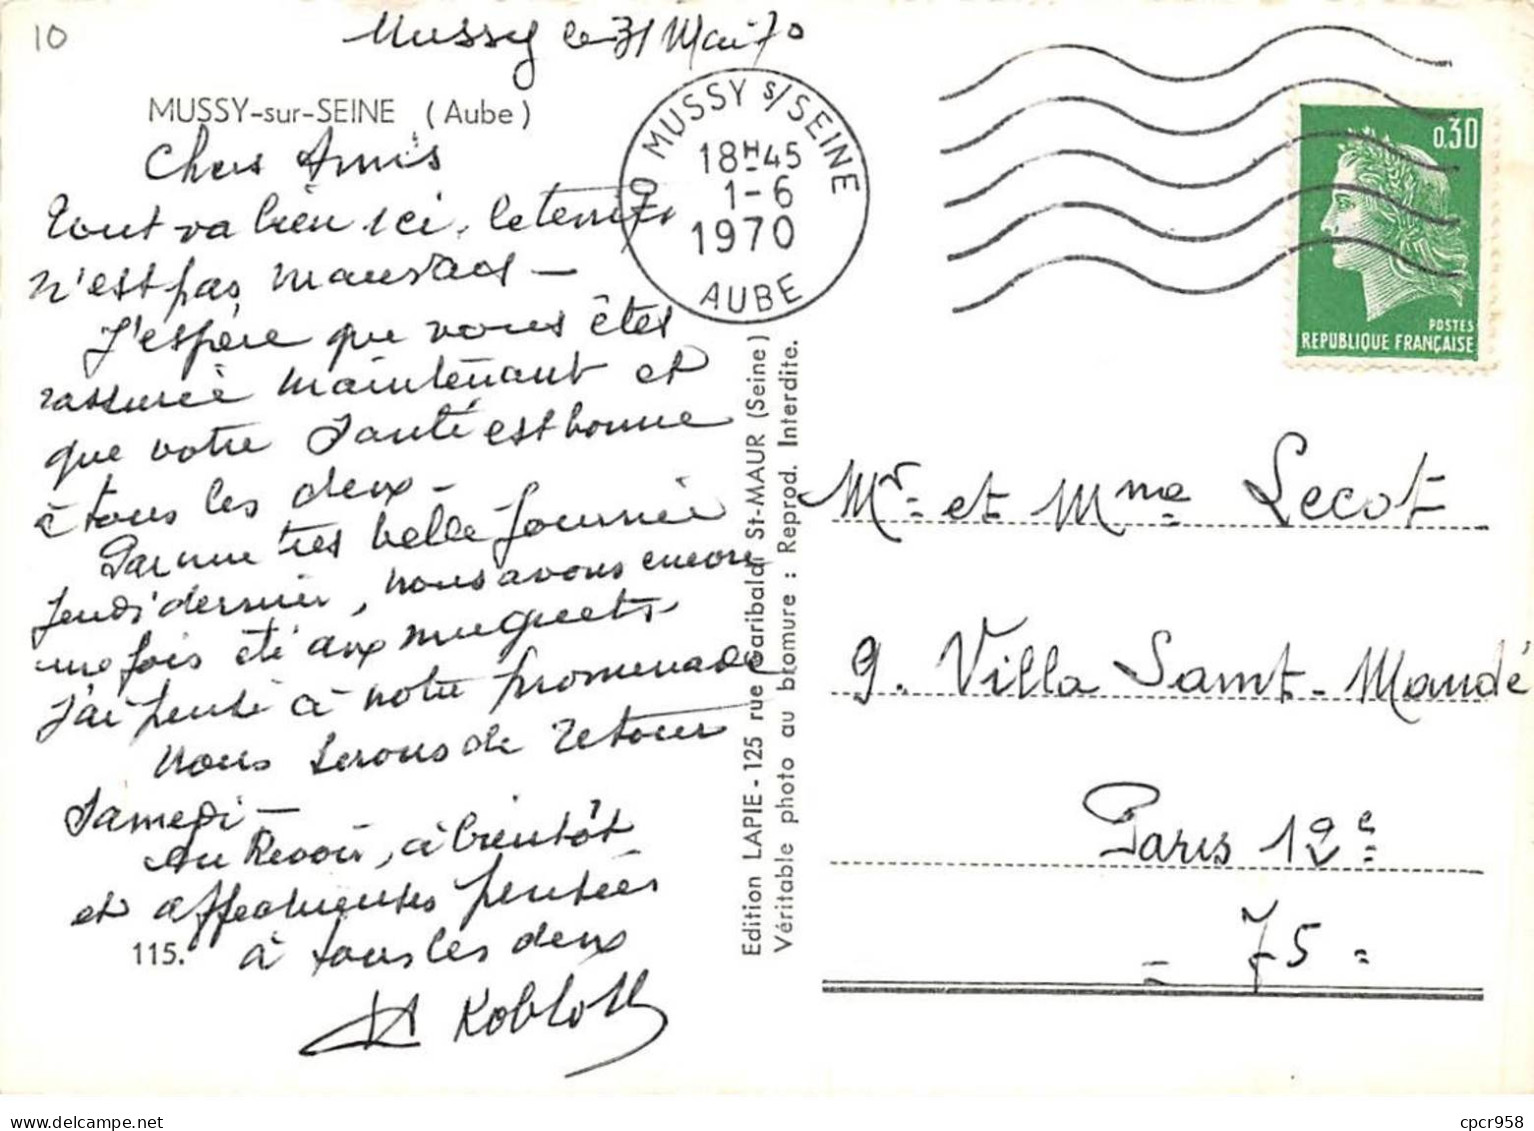 10
Mussy le 31 Mai 70
MUSSY-sur-SEINE (Aube)
Chers Amis
Tout va bien ici, le temps
n'est pas mauvais -
J'espère que vous êtes
rassurée maintenant et
que votre santé est bonne
à tous les deux -
Par une très belle journée
jeudi dernier, nous avons encore
une fois été aux muguets
j'ai pensé à notre promenade
Nous serons de retour
Samedi -
Au Revoir, à bientôt
et affectueuses pensées
à tous les deux
Koblott
115.
MUSSY S/SEINE
18H45
1-6
1970
AUBE
Edition LAPIE - 125 rue Garibaldi St-MAUR (Seine)
Véritable photo au bromure : Reprod. Interdite.
0.30
POSTES
REPUBLIQUE FRANÇAISE
Mr et Mme Lecot
9. Villa Saint-Mandé
Paris 12e
- 75 =
cpcr958